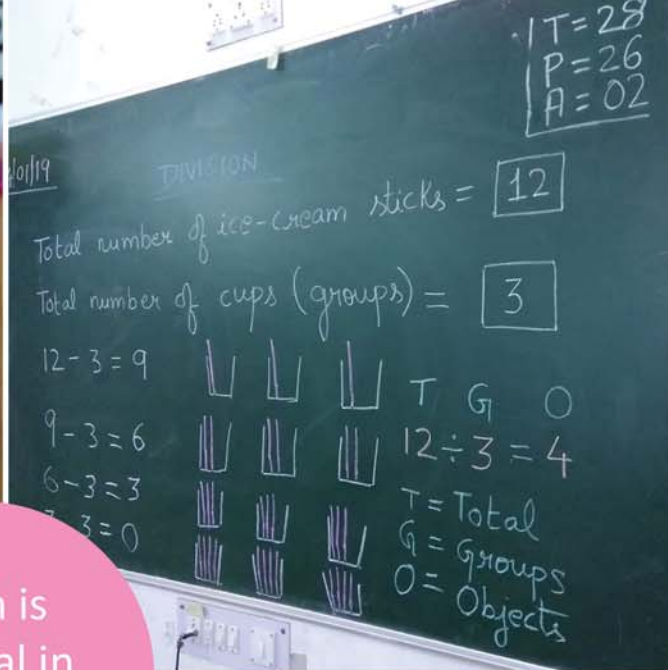 T = 28
P = 26
A = 02
/01/19
DIVISION
Total number of ice-cream sticks = 12
Total number of cups (groups) = 3
12 - 3 = 9
9 - 3 = 6
6 - 3 = 3
3 = 0
T G O
12 ÷ 3 = 4
T = Total
G = Groups
O = Objects
is
in